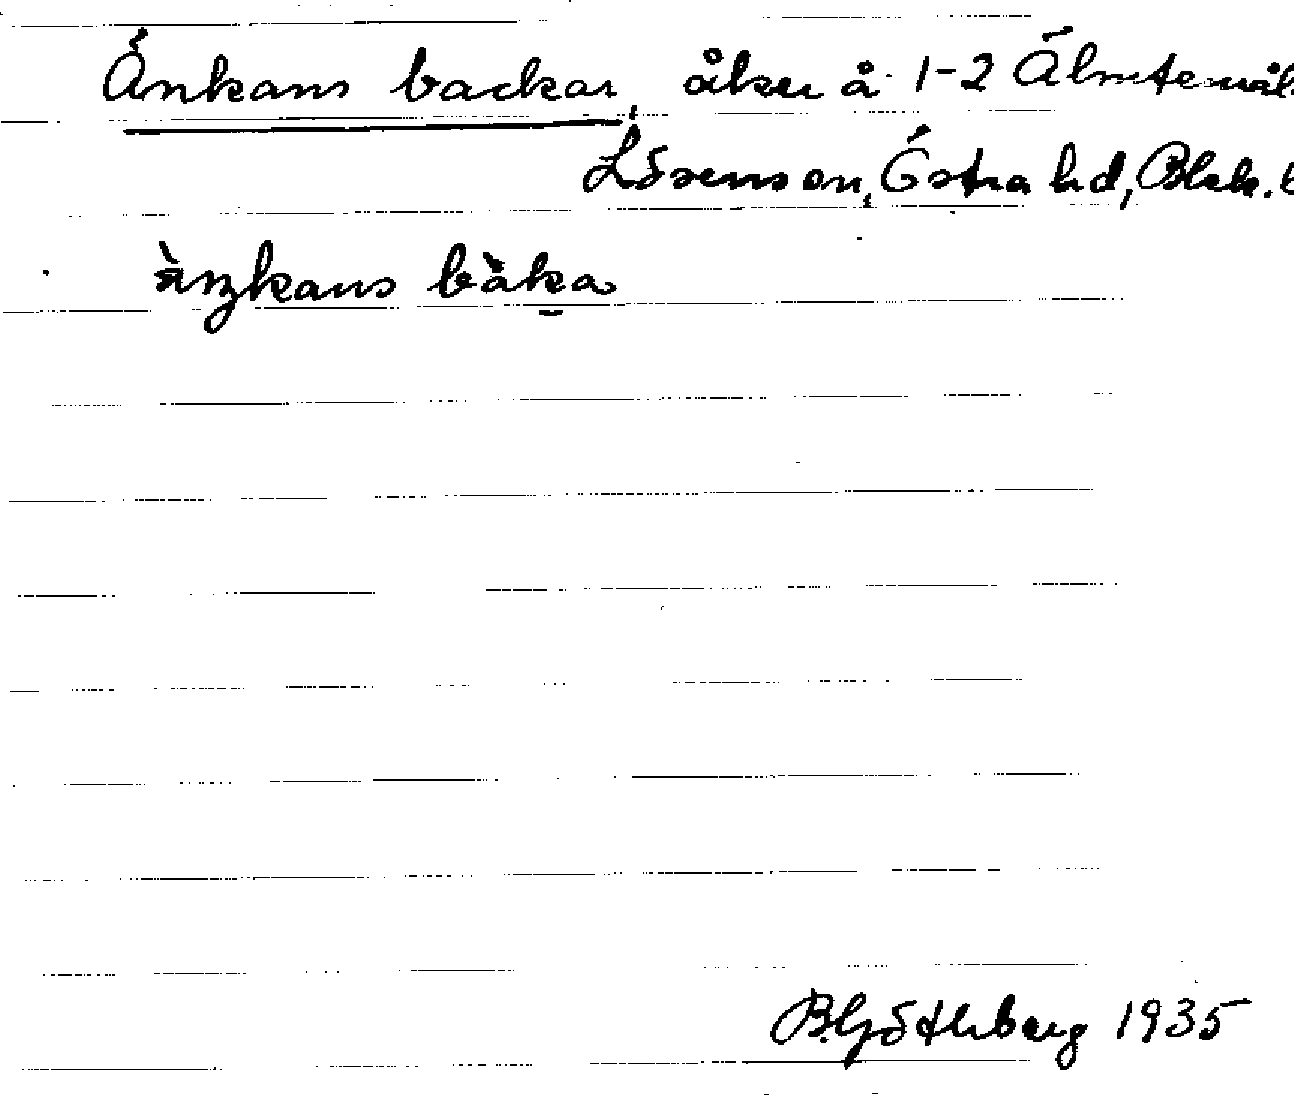 Änkans backar, åker å 1-2 Älmtemåla
Lösens sn, Östra hd, Blek. l
äŋkans bàka
B. Göthberg 1935